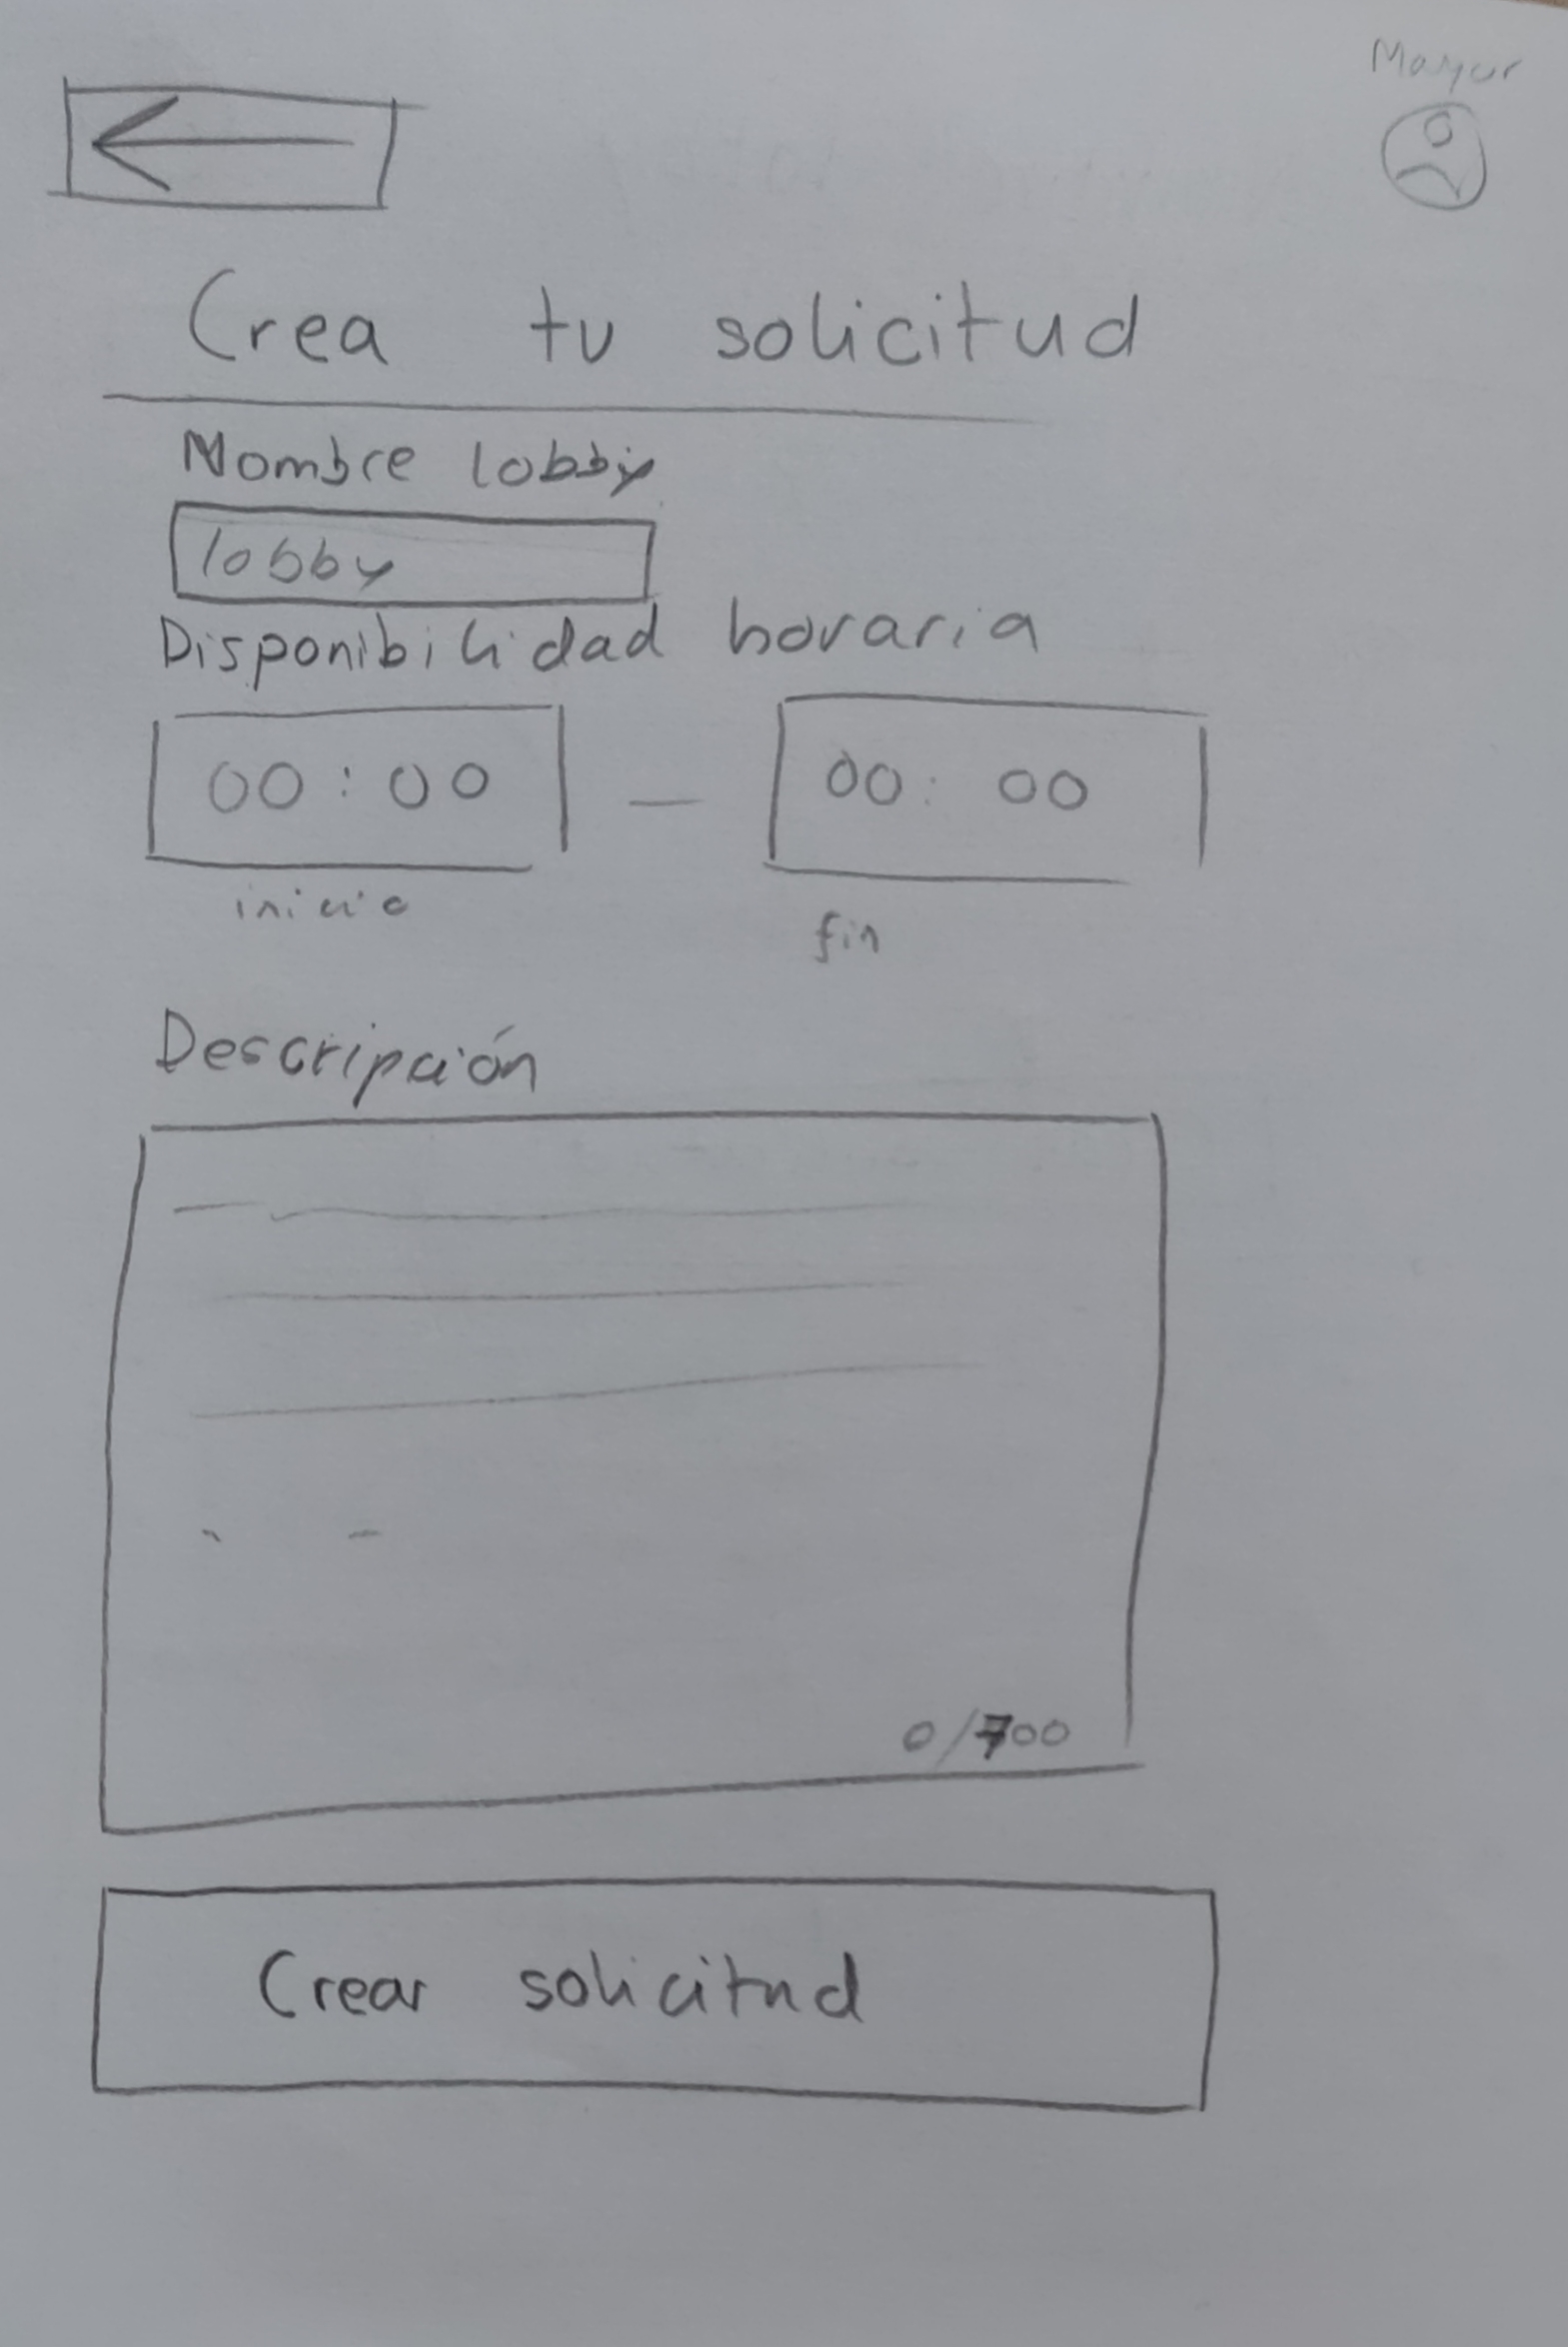 Mayor
Crea tu solicitud
Nombre lobby
lobby
Disponibilidad horaria
00:00 — 00:00
inicio fin
Descripción
0/700
Crear solicitud